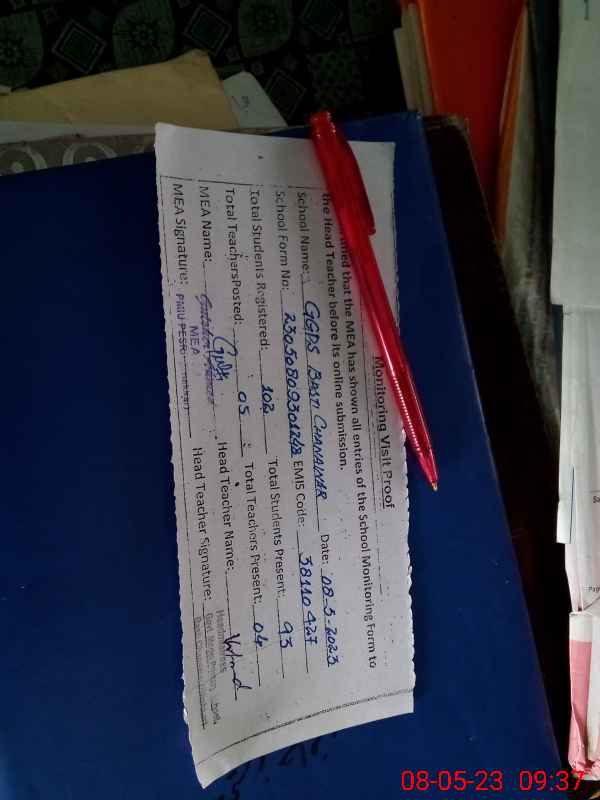 Monitoring Visit Proof
that the MEA has shown all entries of the School Monitoring Form to
the Head Teacher before its online submission.
School Name: GGPS BASTI CHANALWAR Date: 08-5-2023
School Form No: 23050809301248 EMIS Code: 38110427
Total Students Registered: 102 Total Students Present: 93
Total TeachersPosted: 05 Total Teachers Present: 04
MEA Name: Head Teacher Name:
MEA Signature: MEA Head Teacher Signature:
Headmistress
08-05-23 09:37